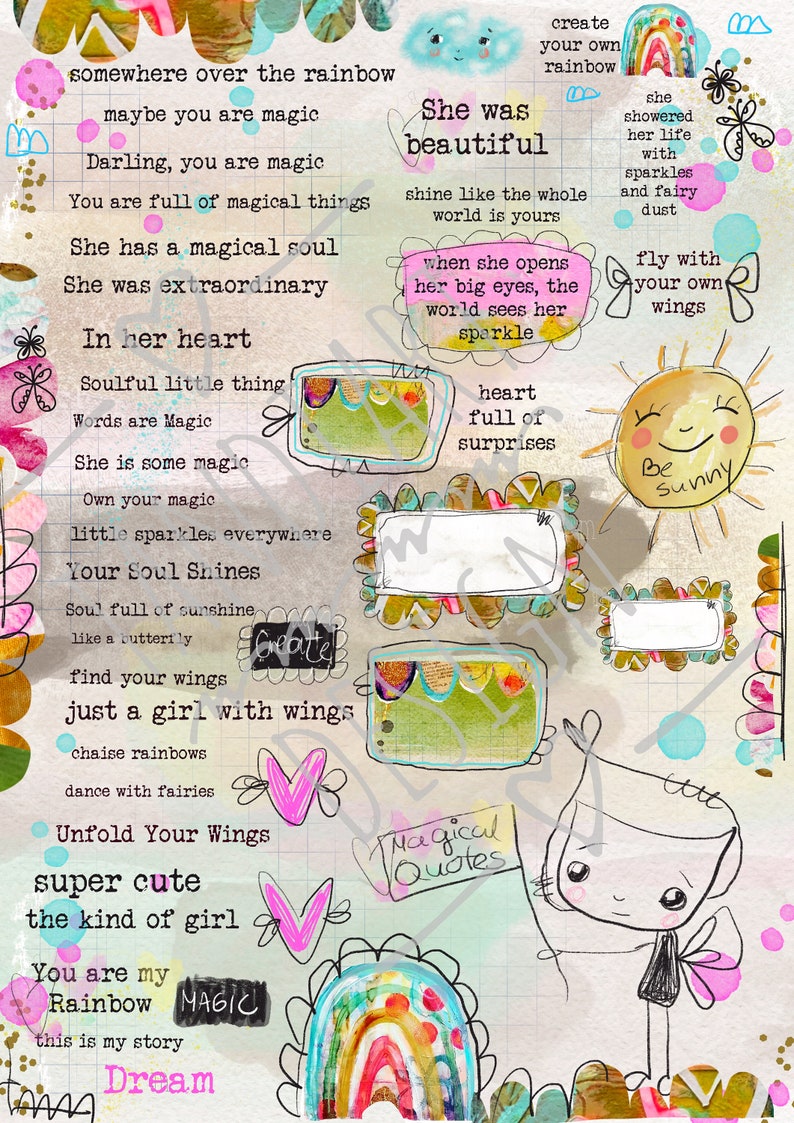 somewhere over the rainbow
maybe you are magic
Darling, you are magic
You are full of magical things
She has a magical soul
She was extraordinary
In her heart
Soulful little thing
Words are Magic
She is some magic
Own your magic
little sparkles everywhere
Your Soul Shines
Soul full of sunshine
like a butterfly
find your wings
just a girl with wings
chaise rainbows
dance with fairies
Unfold Your Wings
super cute
the kind of girl
You are my
Rainbow
this is my story
Dream
Create
MAGIC
create
your own
rainbow
She was
beautiful
she
showered
her life
with
sparkles
and fairy
dust
shine like the whole
world is yours
when she opens
her big eyes, the
world sees her
sparkle
fly with
your own
wings
heart
full of
surprises
Be
sunny
Magical
Quotes